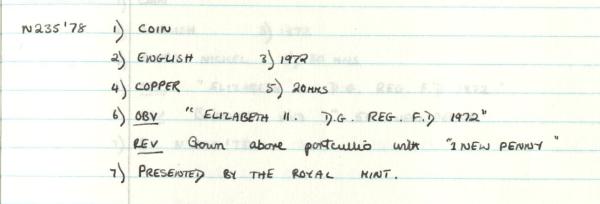 N235'78 1) COIN
2) ENGLISH 3) 1972
4) COPPER 5) 20MMS
6) OBV "ELIZABETH II. D.G. REG. F.D 1972"
REV Crown above portcullis with "1 NEW PENNY"
7) PRESENTED BY THE ROYAL MINT.